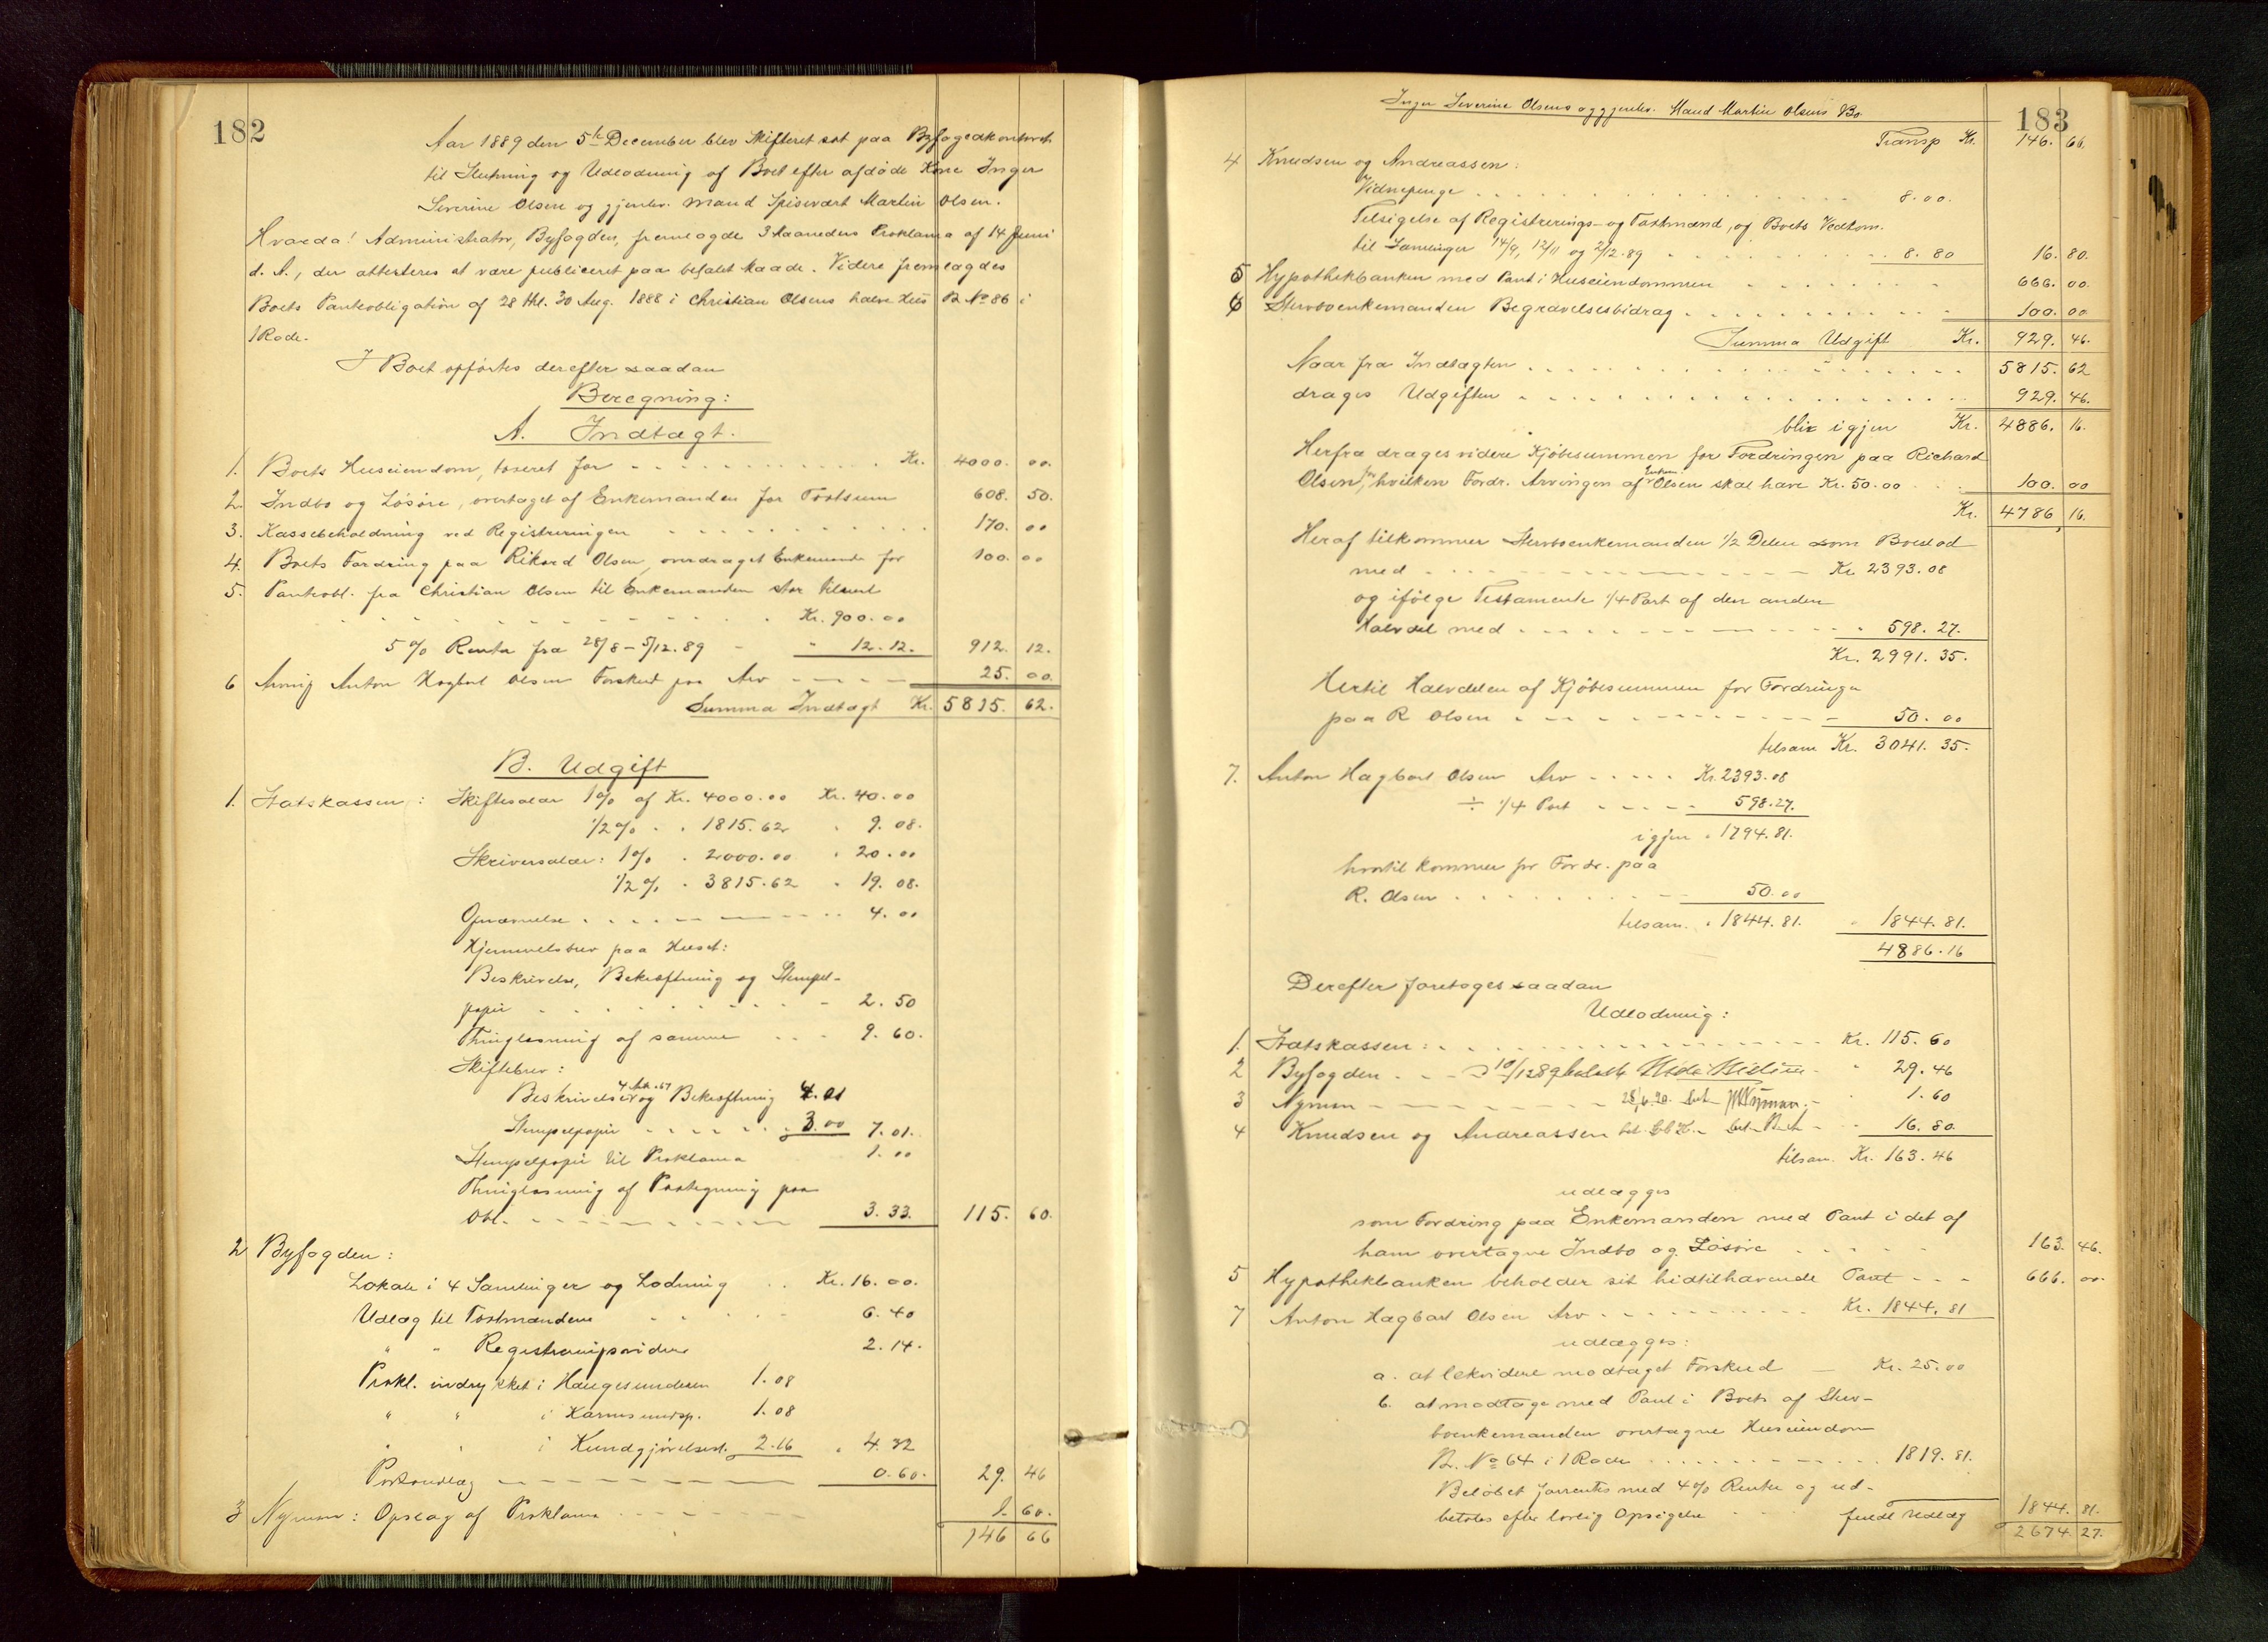 182
Aar 1889 den 5te December blev Skifteret sat paa Byfogedkontoret
til Slutning og Udlodning af Boet efter afdøde Kone Inger
Severine Olsen og gjenlev. Mand Spisevært Martin Olsen.
Hvorda! Administrator, Byfogden, fremlagde 3 Maaneders Proklama af 14 Juni
d. A., der attesteres at være publiceret paa befalet Maade. Videre fremlagdes
Boets Pantobligation af 28 thl. 30 Aug. 1888 i Christian Olsens halve Hus B. No 86 i
1 Rode.
I Boet opførtes derefter saadan
Beregning:
A. Indtægt.
1. Boets Huseiendom, taxeret for Kr. 4000. 00.
2. Indbo og Løsøre, overtaget af Enkemanden for Taxtsum 608. 50.
3. Kassebeholdning ved Registreringen 170. 00
4. Boets Fordring paa Rikard Olsen, overdraget Enkemanden for 100. 00
5. Pantobl. fra Christian Olsen til Enkemanden stor tilrest
Kr. 900. 00
5 % Renter fra 28/8 - 5/12. 89 " 12. 12. 912. 12.
6 Arving Anton Hagbart Olsen Forskud paa Arv 25. 00.
Summa Indtægt Kr. 5815. 62.
B. Udgift
1. Statskassen: Skiftesalær 1% af Kr. 4000.00 Kr. 40.00
1/2 % " " 1815.62 " 9. 08.
Skriversalær: 1% " 2000.00 " 20.00
1/2 % " 3815.62 " 19. 08.
Opnævnelse 4.00
Hjemmelsbrev paa Huset:
Beskrivelse, Bekræftning og Stempel-
papir 2. 50
Thinglæsning af samme 9. 60.
Skiftebrev:
Beskrivelse og Bekræftning 4.01
Stempelpapir 3.00 7. 01.
Stempelpapir til Proklama 1. 00
Thinglæsning af Paategning paa
Obl. 3. 33. 115. 60.
2 Byfogden:
Lokale i 4 Samlinger og Lodning Kr. 16. 00.
Udlæg til Taxtmændene 6. 40
" " Registreringsvidne 2. 14.
Prokl. indrykket i Haugesunderen 1. 08
" " i Karmsundsp. 1. 08
" " i Kundgjørelsest. 2.16 " 4. 32
Portoudlæg 0. 60. 29. 46
3 Nyman: Opslag af Proklama 1. 60.
146 66
Inger Severine Olsens og gjenlev. Mand Martin Olsens Bo.
183
Transp Kr. 146. 66.
4 Knudsen og Andreassen:
Vidnepenge 8. 00.
Tilsigelse af Registrerings- og Taxtmænd, og Boets Vedkom.
til Samlinger 14/9, 12/11 og 2/12. 89 8. 80 16. 80.
5 Hypothekbanken med Pant i Huseiendommen 666. 00.
6 Stervboenkemanden Begravelsesbidrag 100. 00
Summa Udgift Kr. 929. 46.
Naar fra Indtægten 5815. 62
drages Udgiften 929. 46.
blir igjen Kr. 4886. 16.
Herfra drages videre Kjøbesummen for Fordringen paa Richard
Olsen, for hvilken Fordr. Arvingen af Olsen skal have Kr. 50.00 100. 00
Kr. 4786 16.
Heraf tilkommer Stervboenkemanden 1/2 Delen som Boeslod
med Kr. 2393. 08
og ifølge Testamente 1/4 Part af den anden
Halvdel med 598. 27.
Kr. 2991. 35.
Hertil Halvdelen af Kjøbesummen for Fordringen
paa R Olsen 50. 00
tilsam Kr. 3041. 35.
7. Anton Hagbart Olsen Arv Kr. 2393.08
÷ 1/4 Part 598.27.
igjen " 1794. 81.
hvortil kommer for Fordr. paa
R. Olsen 50. 00
tilsam. " 1844. 81. " 1844. 81.
4886. 16
Derefter foretoges saadan
Udlodning:
1. Statskassen: Kr. 115. 60
2 Byfogden 10/12 89 29. 46
3 Nyman 28/6. 90. bet. Nyman. 1. 60
4 Knudsen og Andreassen 16. 80
tilsam. Kr. 163. 46
udlægges
som Fordring paa Enkemanden med Pant i det af
ham overtagne Indbo og Løsøre 163. 46.
5 Hypothekbanken beholder sit hidtilhavende Pant 666. 00.
7 Anton Hagbart Olsen Arv Kr. 1844. 81
udlægges:
a. at likvidere modtaget Forskud Kr. 25.00
b. at modtage med Pant i Boets af Sterv-
boenkemanden overtagne Huseiendom
B. No 64 i 1 Rode 1819. 81.
Beløbet forrentes med 4% Rente og ud-
betales efter lovlig Opsigelse fuldt Udlæg 1844. 81.
2674. 27.